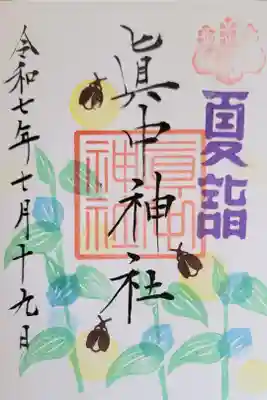 夏詣
眞中神社
神社
令和七年七月十九日